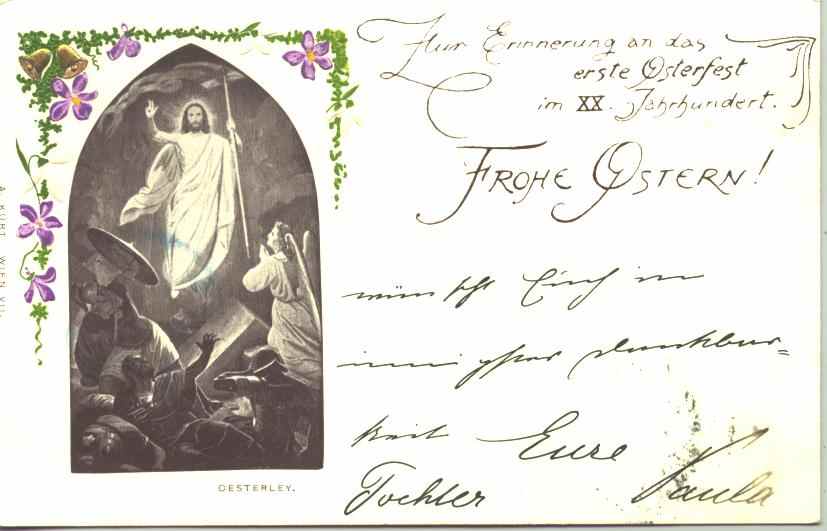 Zur Erinnerung an das
erste Osterfest
im XX. Jahrhundert.
FROHE OSTERN!
wünscht Euch in
innigster Dankbar=
keit Eure
Tochter Paula
OESTERLEY.
A. KÜRT WIEN XII.